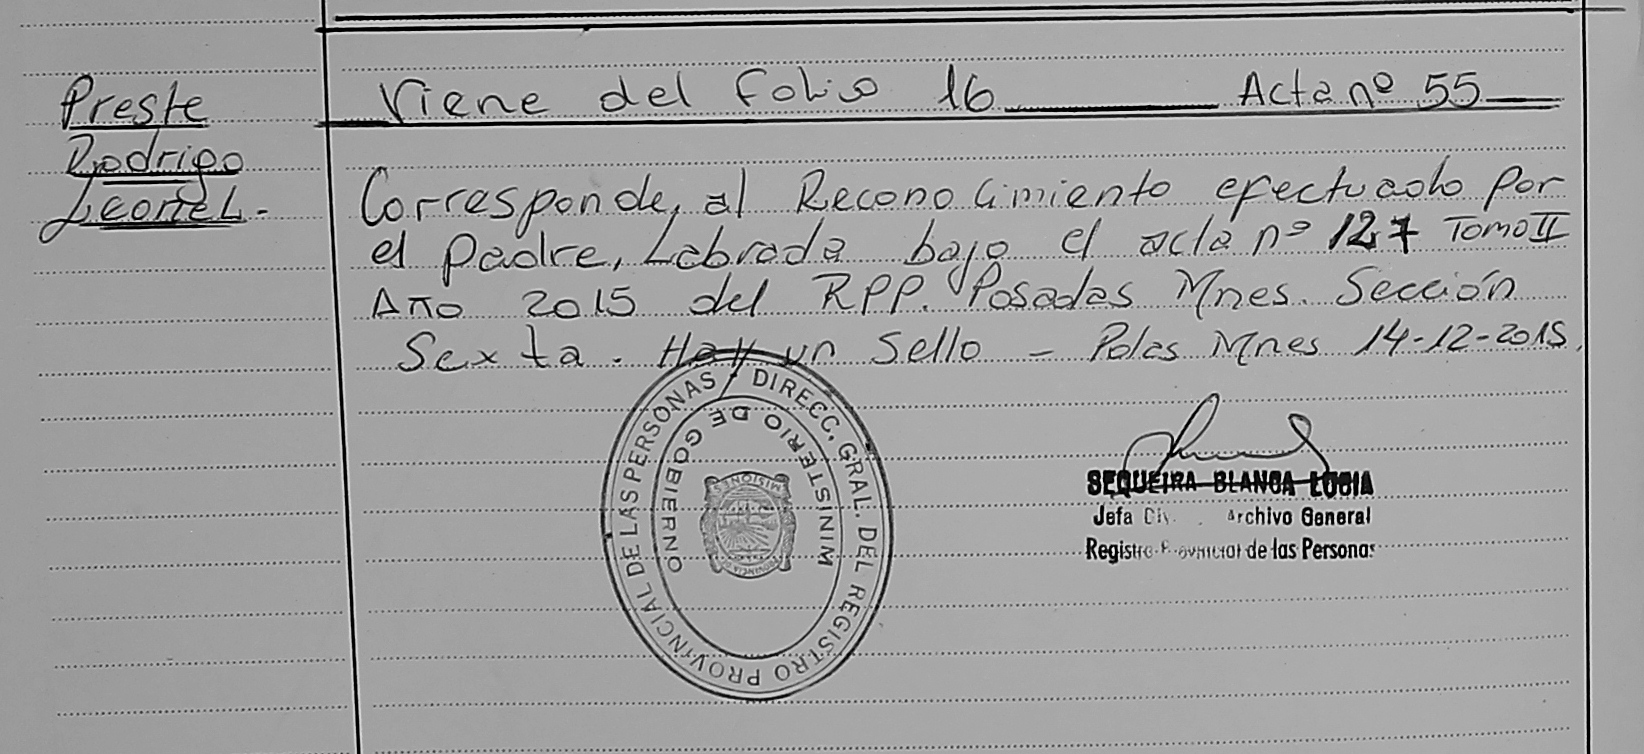 Preste
Rodrigo
Leonel.-
Viene del Folio 16 Acta nº 55
Corresponde, al Reconocimiento efectuado por
el padre, Labrada bajo el acta nº 127 Tomo II
Año 2015 del RPP. Posadas Mnes. Sección
Sexta. Hay un Sello - Pdas Mnes 14-12-2015.
DIRECC. GRAL. DEL REGISTRO PROVINCIAL DE LAS PERSONAS
MINISTERIO DE GOBIERNO
PROVINCIA DE MISIONES
SEQUEIRA BLANCA LUCIA
Jefa Div. Archivo General
Registro Provincial de las Personas